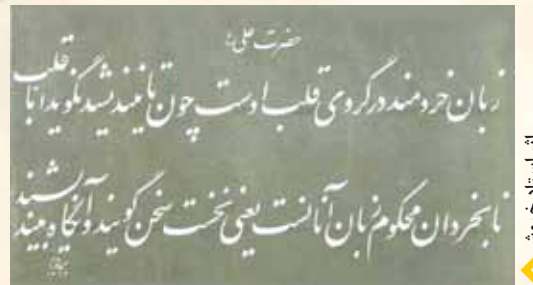 حضرت علی:
زبان خردمند در گروی قلب اوست چون تا نیندیشد نگوید اما قلب
نابخردان محکوم زبان آنانست یعنی نخست سخن گویند و آنگاه بیندیشند